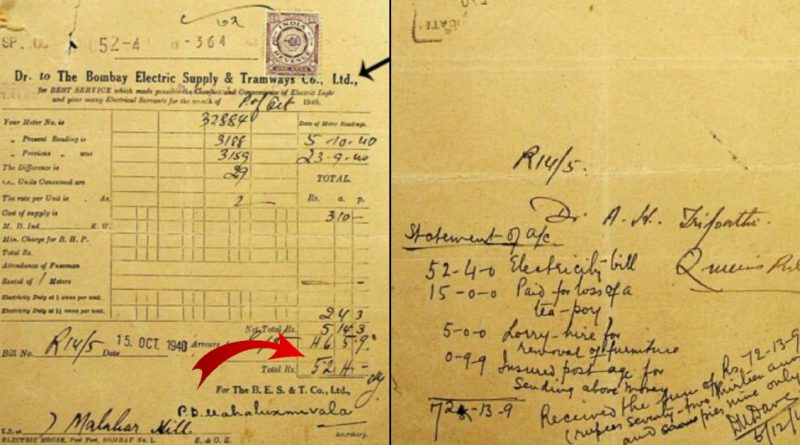 62
52-4 364
INDIA
REVENUE
ONE ANNA
Dr. to The Bombay Electric Supply & Tramways Co., Ltd.,
for BEST SERVICE which made possible the Comfort and Convenience of Electric Light
and your many Electrical Servants for the month of P of Oct 1940.
Your Meter No. is 32884 Date of Meter Readings.
„ Present Reading is 3188 5-10-40
„ Previous „ was 3159 23-9-40
The Difference is 29 TOTAL.
i.e., Units Consumed are
The rate per Unit is As. 2 Rs. a. p.
Cost of supply is 3 10 -
M. D. Ind. K. W.
Min. Charge for B. H. P.
Total Rs.
Attendance of Fuseman
Rental of 1 Meters
Electricity Duty at 1 anna per unit.
Electricity Duty at 1½ annas per unit. 2 4 3
Net Total Rs. 5 14 3
Bill No. R14/5 Date 15 OCT 1940 Arrears 46 5 9
Total Rs. 52 4 -
For The B. E. S. & T. Co., Ltd.,
P.D. Mahaluxmivala
Malabar Hill Secretary.
ELECTRIC HOUSE, Fort Post, BOMBAY No. 1. E. & O. E.
R14/5.
Dr. A. H. Tripathi
Queens Rd
Statement of a/c
52-4-0 Electricity bill
15-0-0 Paid for loss of a
tea-poy
5-0-0 Lorry-hire for
removal of furniture
0-9-9 Insured postage for
Sending above money
72-13-9
Received the sum of Rs. 72-13-9
(rupees seventy-two thirteen annas
and pies nine only)
5/12/